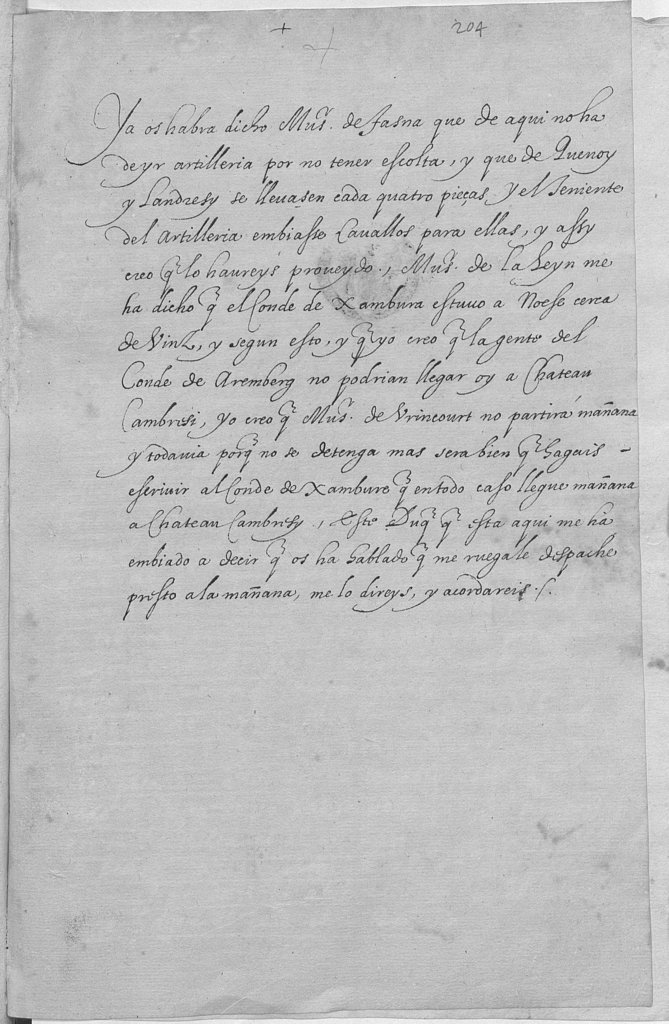 + 204
Ya os habra dicho Mus^r. de Jasna que de aqui no ha
de yr artilleria por no tener escolta, y que de Quenoy
y Landresy se llevasen cada quatro pieças, y el Teniente
del Artilleria embiasse Cavallos para ellas, y assy
creo q̃ lo haureys proveydo., Mus^r. de la Leyn me
ha dicho q̃ el Conde de Xambura estuvo a Noese cerca
de Vinz, y segun esto, y q̃ yo creo q̃ la gente del
Conde de Aremberg no podrian llegar oy a Chateau
Cambresi, yo creo q̃ Mus^r. de Vrincourt no partirá mañana
y todavia porq̃ no se detenga mas sera bien q̃ hagais
escrivir al Conde de Xambure q̃ en todo caso llegue mañana
a Chateau Cambresy., Este Duq̃ q̃ esta aqui me ha
embiado a decir q̃ os ha hablado q̃ me ruega le despache
presto a la mañana, me lo direys, y acordareis ./.